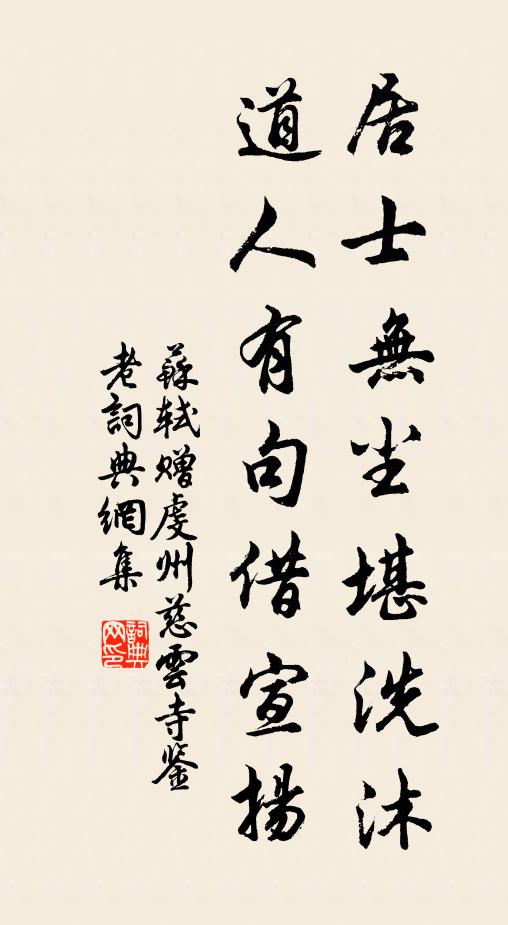 居士無尘堪洗沐
道人有句借宣揚
蘇軾赠虔州慈雲寺鉴
老詞典網集
詞典
网印